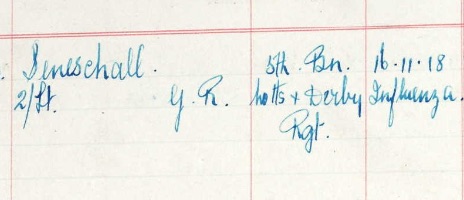 Seneschall. 5th. Bn. 16.11.18
2/Lt. G. R. Notts + Derby Influenza.
Rgt.